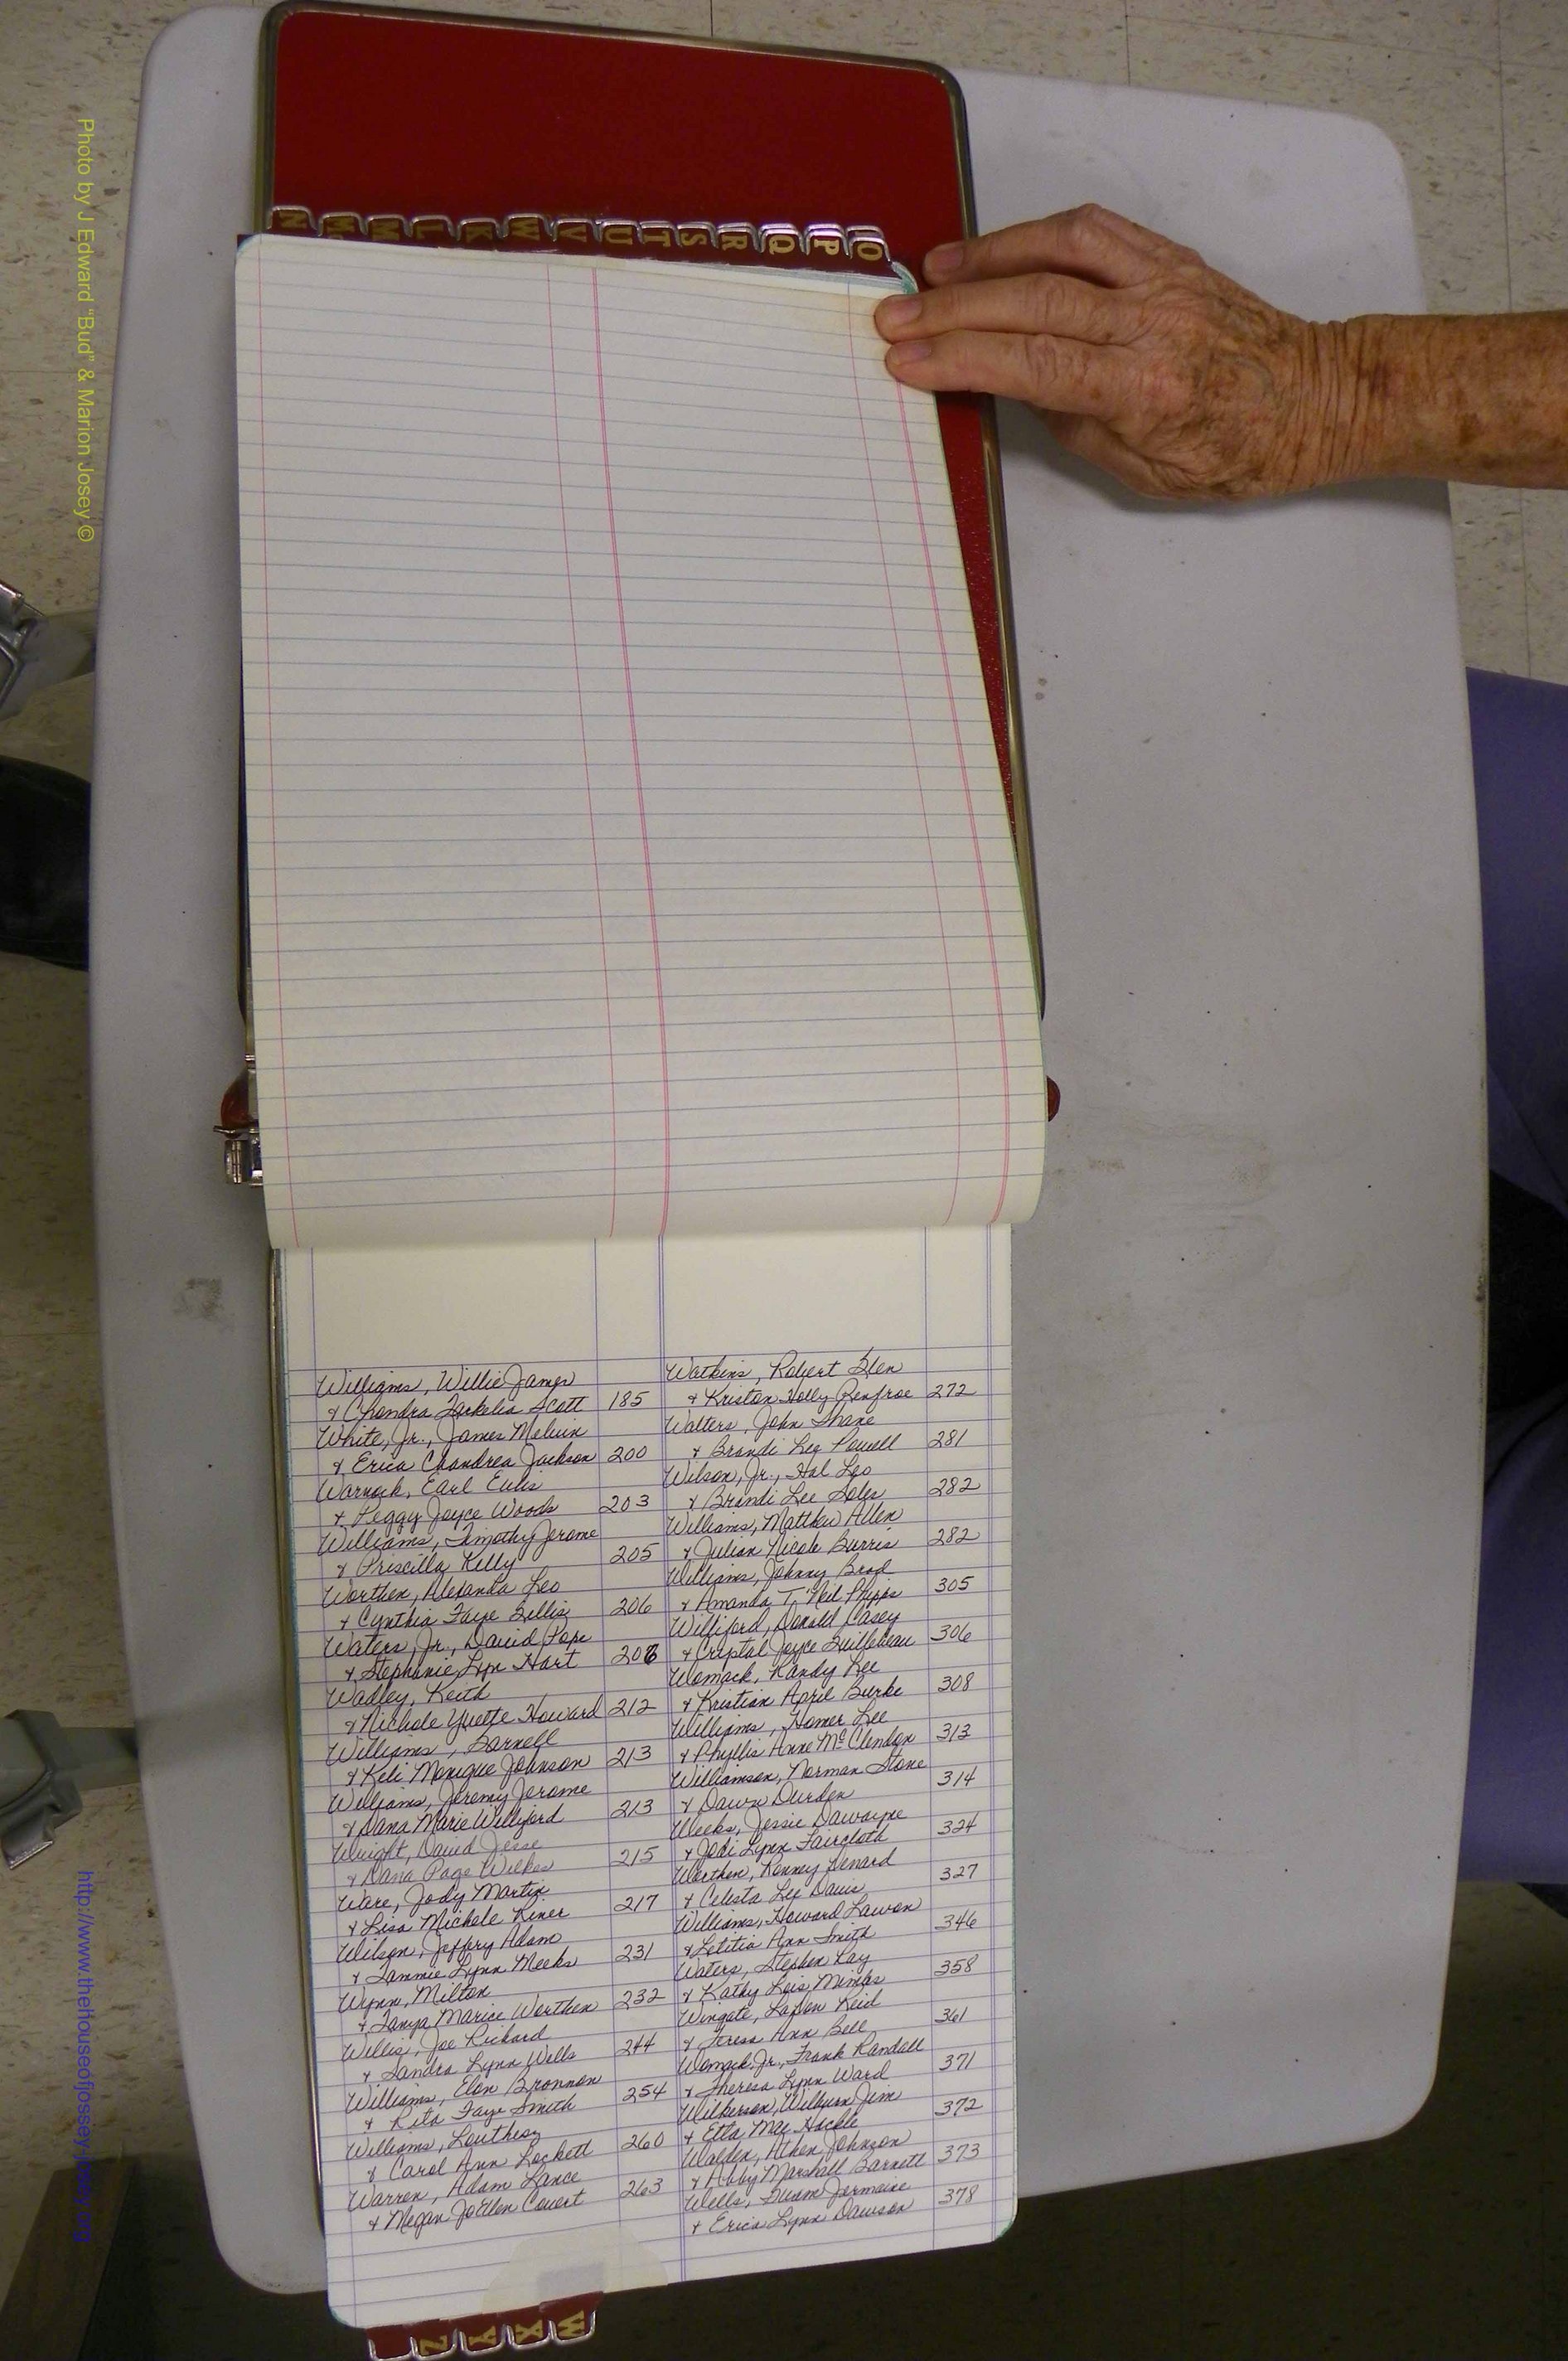 Photo by J Edward "Bud" & Marion Josey ©
http://www.thehouseofjossey-josey.org
N Mc M L K W V U T S R Q P O
Williams, Willie James
& Chondra Lackelia Scott 185
White, Jr., James Melvin
& Erica Chandrea Jackson 200
Warnock, Earl Eulis
& Peggy Joyce Woods 203
Williams, Timothy Jerome
& Priscilla Kelly 205
Worthen, Leo
& Cynthia Faye Gillis 206
Waters, Jr., David Pope
& Stephanie Lyn Hart 208
Wadley, Keith
& Nichole Yvette Howard 212
Williams, Darnell
& Keli Monique Johnson 213
Williams, Jeremy Jerome
& Dana Marie Williford 213
Wright, David Jesse
& Dana Page Wilkes 215
Ware, Jody Martin
& Lisa Michele Kiner 217
Wilson, Jeffery Adam
& Tammie Lynn Meeks 231
Wynn, Milton
& Tanya Marice Worthen 232
Willis, Joe Richard
& Sandra Lynn Wells 244
Williams, Elon Bronnon
& Rita Faye Smith 254
Williams,
& Carol Ann Lockett 260
Warren, Adam Lance
& Megan JoEllen Covert 263
Watkins, Robert Glen
& Kristen Holly Renfroe 272
Walters, John Shane
& Brandi Lee Powell 281
Wilson, Jr., Hal Leo
& Brandi Lee Soles 282
Williams, Matthew Allen
& Julian Nicole Burris 282
Williams, Johnny Brad
& Amanda T'Neil Phipps 305
Williford, Donald Casey
& Crystal Joyce Guillebeau 306
Womack, Randy Lee
& Kristian April Burke 308
Williams, Homer Lee
& Phyllis Anne McClendon 313
Williamson, Norman Stone
& Dawn Durden 314
Weeks, Jessie Dawayne
& Jodi Lynn Faircloth 324
Worthen, Kenney Lenard
& Celesta Lee Davis 327
Williams, Howard Lawon
& Letitia Ann Smith 346
Waters, Stephen Ray
& Kathy Lois Mimbs 358
Wingate, Reid
& Teresa Ann Bell 361
Womack Jr., Frank Randall
& Theresa Lynn Ward 371
Wilkerson, Wilburn Jim
& Etta Mae Hackle 372
Walden, Johnson
& Abby Marshall Barnett 373
Wells, Jermaine
& Erica Lynn Dawson 378
Z Y X W